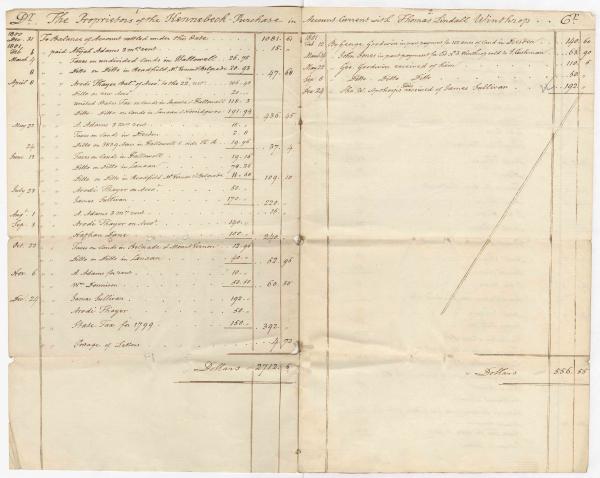 Dr. The Proprietors of the Kennebeck Purchase in Account Current with Thomas Lindall Winthrop Cr.
1800 Dec. 31 To Balance of Account settled under this Date 1081. 61
1801 paid Abijah Adams 2 mos rent 15. "
March 4 Taxes on undivided lands in Hallowell 26.75
8 Ditto on Ditto in Readfield, Mt Vernon & Belgrade 20.93 47. 68
April 8 Arodi Thayer Bal. of Acco. to the 22d
Ditto on new Acco. 20. "
United States Tax on lands in Augusta & Hallowell 118.3
Ditto Ditto on lands in Canaan & Norridgwock 191.94 436. 45
May 22 A. Adams 2 mos rent 15. "
Taxes on lands in Dresden 2. 8
24 19.96 37. 4
June 13 Taxes on lands in Hallowell 19.16
Ditto on Ditto in Canaan
Ditto on Ditto in Readfield Mt Vernon & Belgrade 11.60 109. 10
July 23 Arodi Thayer on Acco. 50. "
James Sullivan 170. " 220. "
Augt 1 A. Adams 2 mos rent 15. "
Sep. 3 Arodi Thayer on Acco. 140. "
Nathan Lane 100. " 240. "
Oct. 22 Taxes on lands in Belgrade & Mount Vernon 12.96
Ditto on Ditto in Canaan 40. " 52. 96
Nov 6 A. Adams for rent 10. "
Wm Donnison 50.50 60. 50
Dec. 24 James Sullivan 192. "
Arodi Thayer 50. "
State Tax for 1799 150. " 392. "
Postage of Letters 4. 72
Dollars 2712. 6
1801
Feb. 12 By George Goodwin in part payment for land in Dresden 140. 60
John Jones in part payment for sold to J. Cushman 63. 90
Geo. Goodwin received of him 110. 5
Sep. 8 Ditto Ditto Ditto 50. "
Dec 24 received of James Sullivan 192. "
Dollars 556. 55